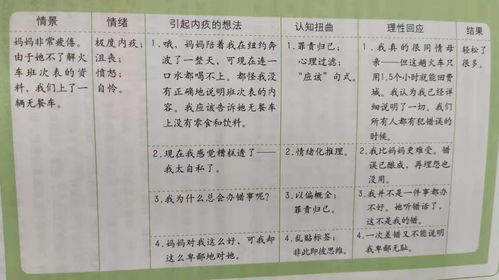 情景
情绪
引起内疚的想法
认知扭曲
理性回应
结果
妈妈非常疲倦。
由于她不了解火
车班次表的资
料，我们上了一
辆无餐车。
极度内疚；
沮丧；
愤怒；
自怜。
1.哦，妈妈陪着我在纽约奔
波了一整天，可现在连一
口水都喝不上。都怪我没
有正确地说明班次表的内
容。我应该告诉她无餐车
上没有零食和饮料。
1.罪责归己；
心理过滤；
“应该”句式。
1.我真的很同情母
亲——但这趟火车只
用1.5个小时就能回费
城。我认为我已经详
细说明了一切。我们
所有人都有犯错误的
时候。
轻松了
很多。
2.现在我感觉糟糕透了——
我太自私了。
2.情绪化推理。
2.我比妈妈更难受。错
误已酿成，再埋怨也
没用。
3.我为什么总会办错事呢？
3.以偏概全；
罪责归己。
3.我并不是一件事都办
不好。她听错话了，
这不是我的错。
4.妈妈对我这么好，可我却
这么卑鄙地对她。
4.乱贴标签；
非此即彼思维。
4.一次差错又不能说明
我卑鄙无耻。